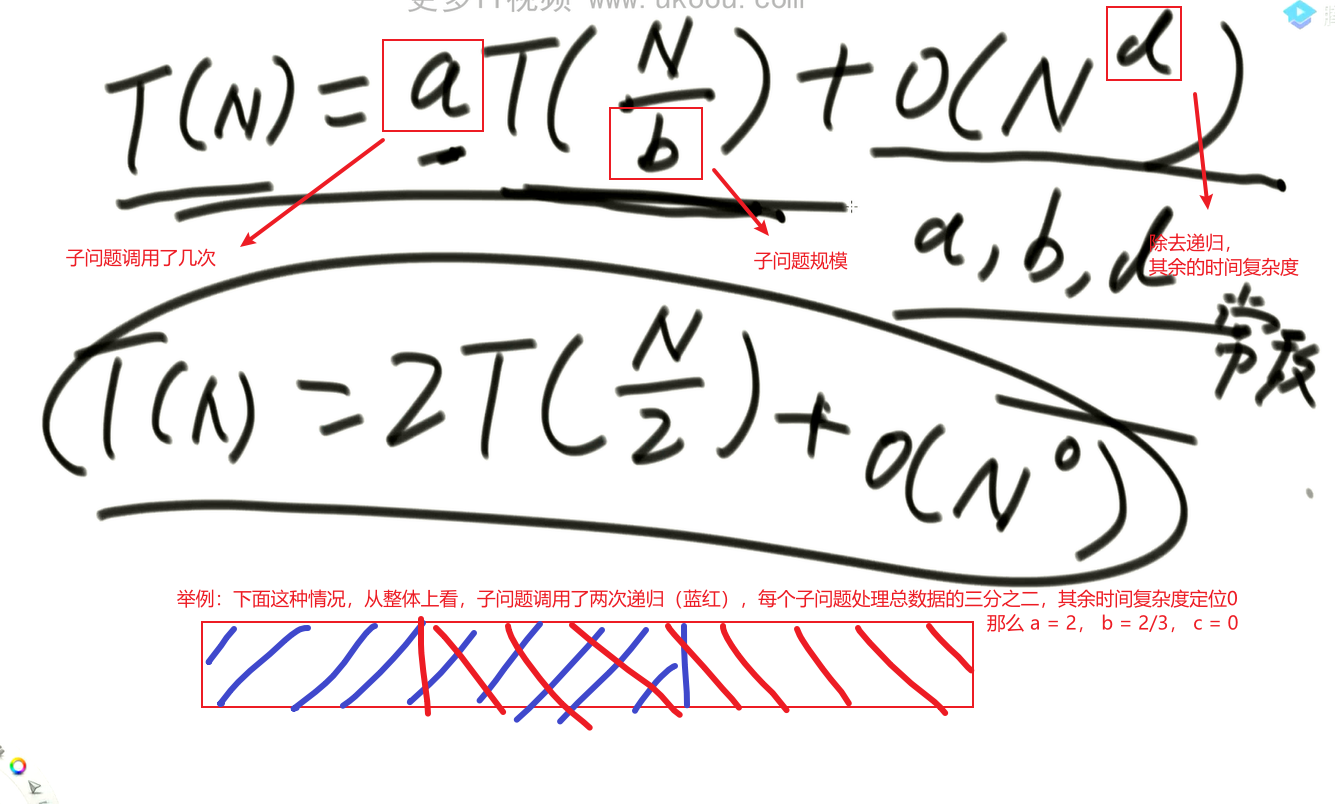 更多IT视频 www.ukoou.com
T(N) = aT(N/b) + O(N^d)
子问题调用了几次
子问题规模
a, b, d
除去递归,
其余的时间复杂度
常数
T(N) = 2T(N/2) + O(N^0)
举例:下面这种情况,从整体上看,子问题调用了两次递归(蓝红),每个子问题处理总数据的三分之二,其余时间复杂度定位0
那么 a = 2, b = 2/3, c = 0